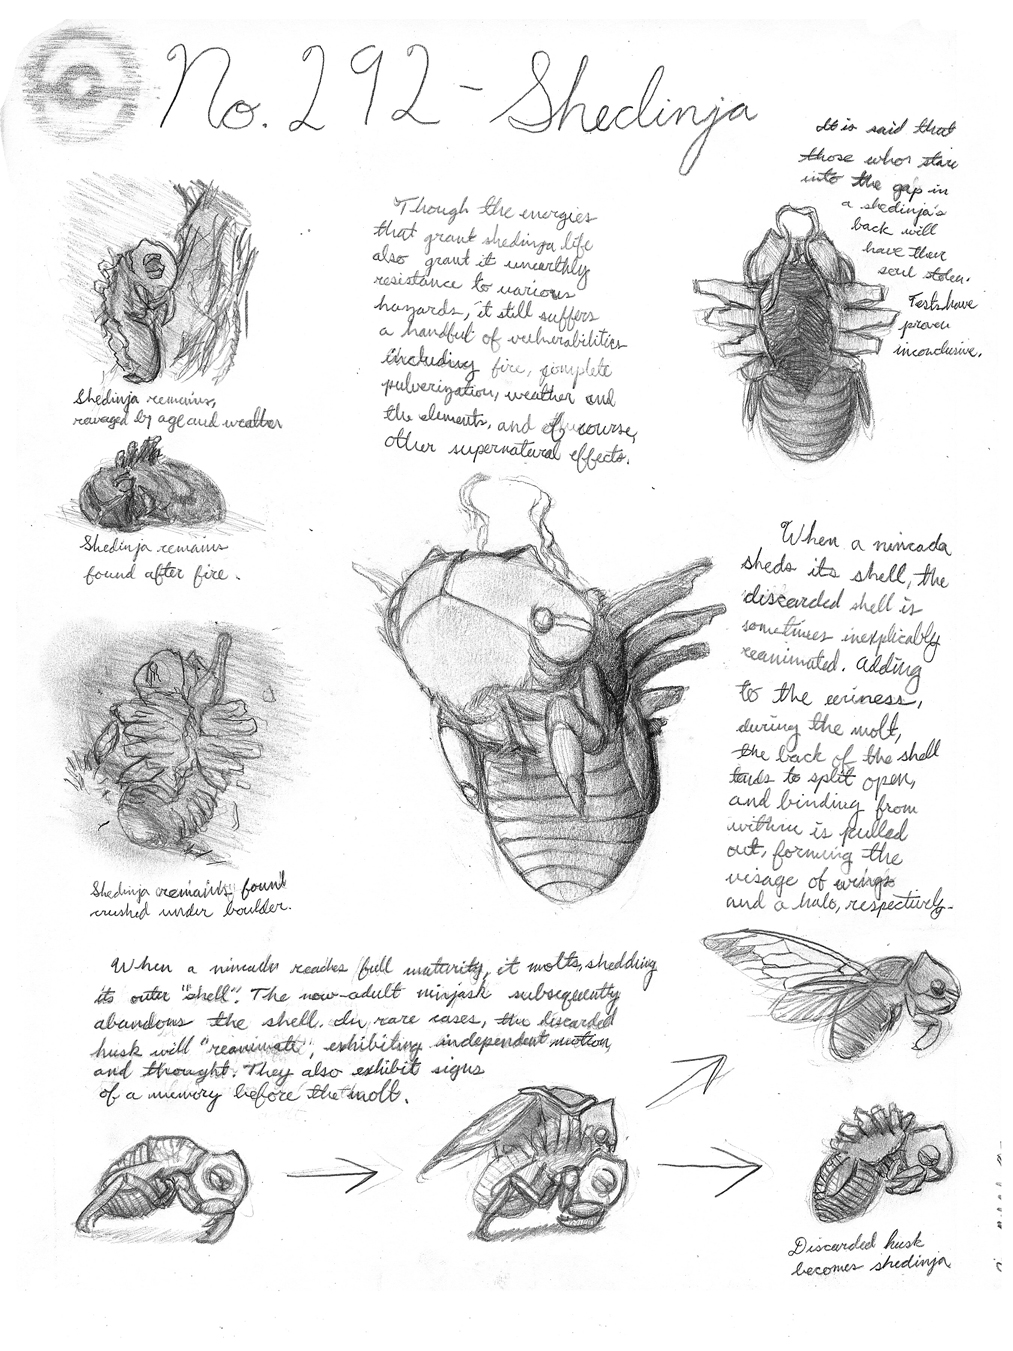 No. 292 - Shedinja
It is said that
those who stare
into the gap in
a shedinja's
back will
have their
soul stolen.
Tests have
proven
inconclusive.
Though the energies
that grant shedinja life
also grant it unearthly
resistance to various
hazards, it still suffers
a handful of vulnerabilities
including fire, complete
pulverization, weather and
the elements, and of course,
other supernatural effects.
Shedinja remains,
ravaged by age and weather
Shedinja remains
found after fire.
Shedinja remains found
crushed under boulder.
When a nincada
sheds its shell, the
discarded shell is
sometimes inexplicably
reanimated. Adding
to the eeriness,
during the molt,
the back of the shell
tends to split open,
and binding from
within is pulled
out, forming the
visage of wings
and a halo, respectively.
When a nincada reaches full maturity, it molts, shedding
its outer "shell". The now-adult ninjask subsequently
abandons the shell. In rare cases, the discarded
husk will "reanimate", exhibiting independent motion,
and thought. They also exhibit signs
of a memory before the molt.
Discarded husk
becomes shedinja